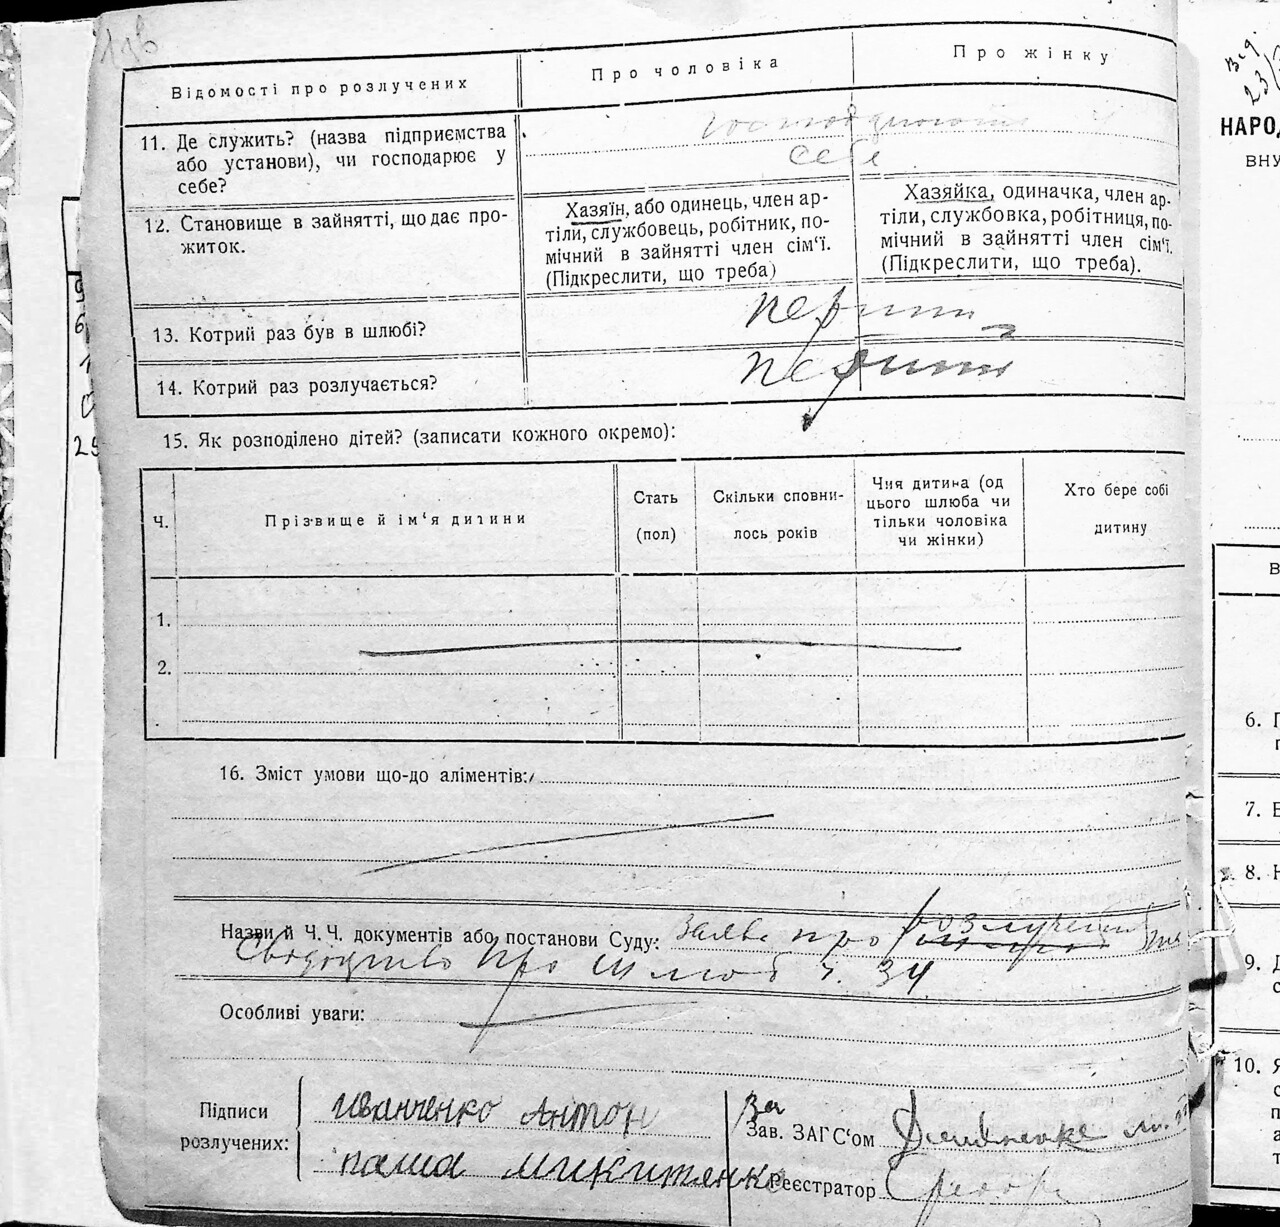 Відомості про розлучених
Про чоловіка
Про жінку
11. Де служить? (назва підприємства
або установи), чи господарює у
себе?
себе
12. Становище в зайнятті, що дає про-
житок.
Хазяїн, або одинець, член ар-
тіли, службовець, робітник, по-
мічний в зайнятті член сім'ї.
(Підкреслити, що треба)
Хазяйка, одиначка, член ар-
тіли, службовка, робітниця, по-
мічний в зайнятті член сім'ї.
(Підкреслити, що треба).
13. Котрий раз був в шлюбі?
перший
14. Котрий раз розлучається?
перший
15. Як розподілено дітей? (записати кожного окремо):
Ч.
Прізвище й ім'я дитини
Стать
(пол)
Скільки сповни-
лось років
Чия дитина (од
цього шлюба чи
тільки чоловіка
чи жінки)
Хто бере собі
дитину
1.
2.
16. Зміст умови що-до аліментів:
Назви й Ч. Ч. документів або постанови Суду: Заява про розлучення та
Свідоцтво про шлюб ч. 34
Особливі уваги:
Підписи
розлучених:
Иванченко Антон
паша микитенко
За
Зав. ЗАГС'ом
Реєстратор
23/
НАРО
ВНУ
В
6. П
7.
8. Н
9. Д
с
10. Я
с
п
а
т